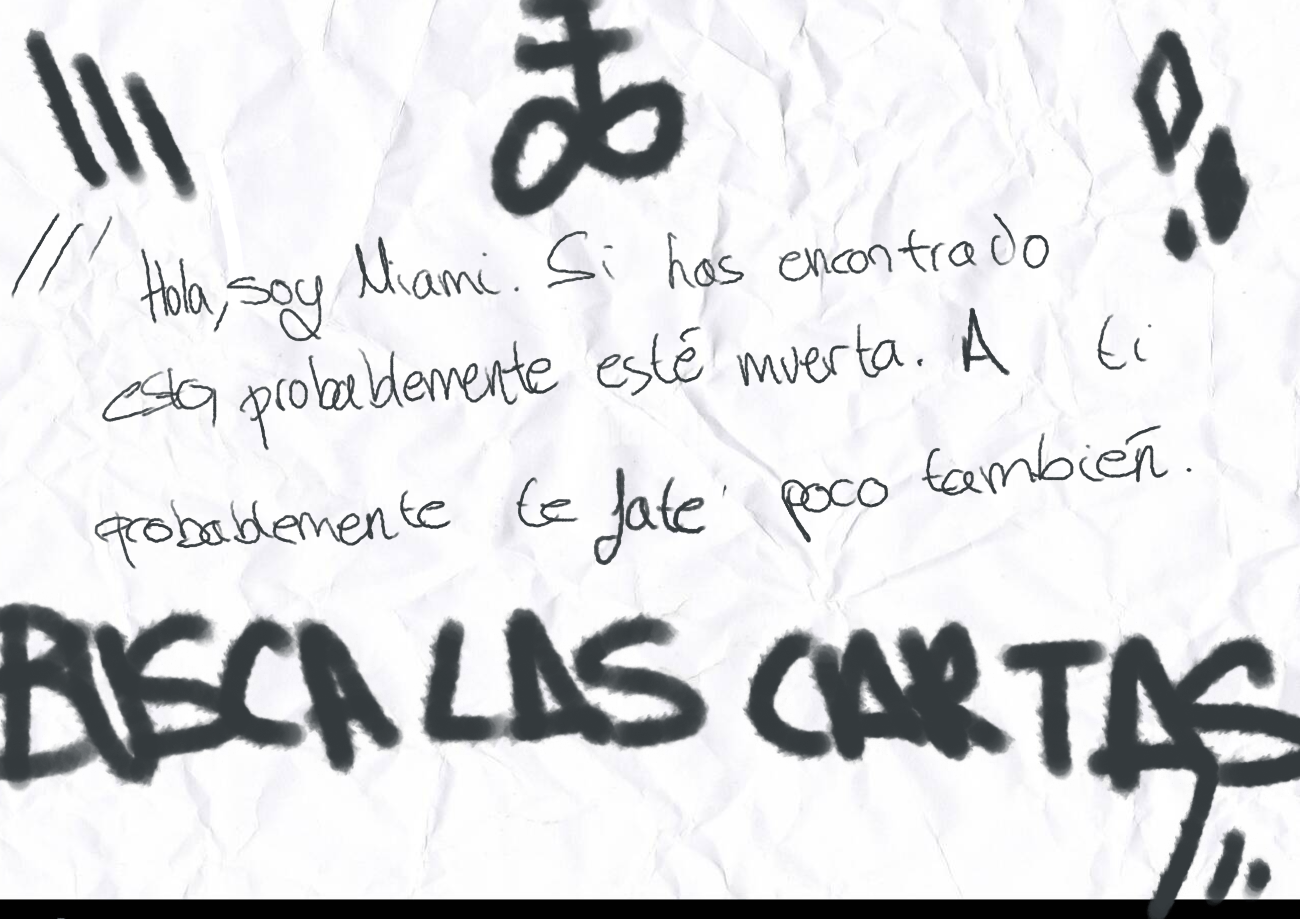 Hola, soy Miami. Si has encontrado
esto, probablemente esté muerta. A ti
probablemente te fate poco también.
BUSCA LAS CARTAS